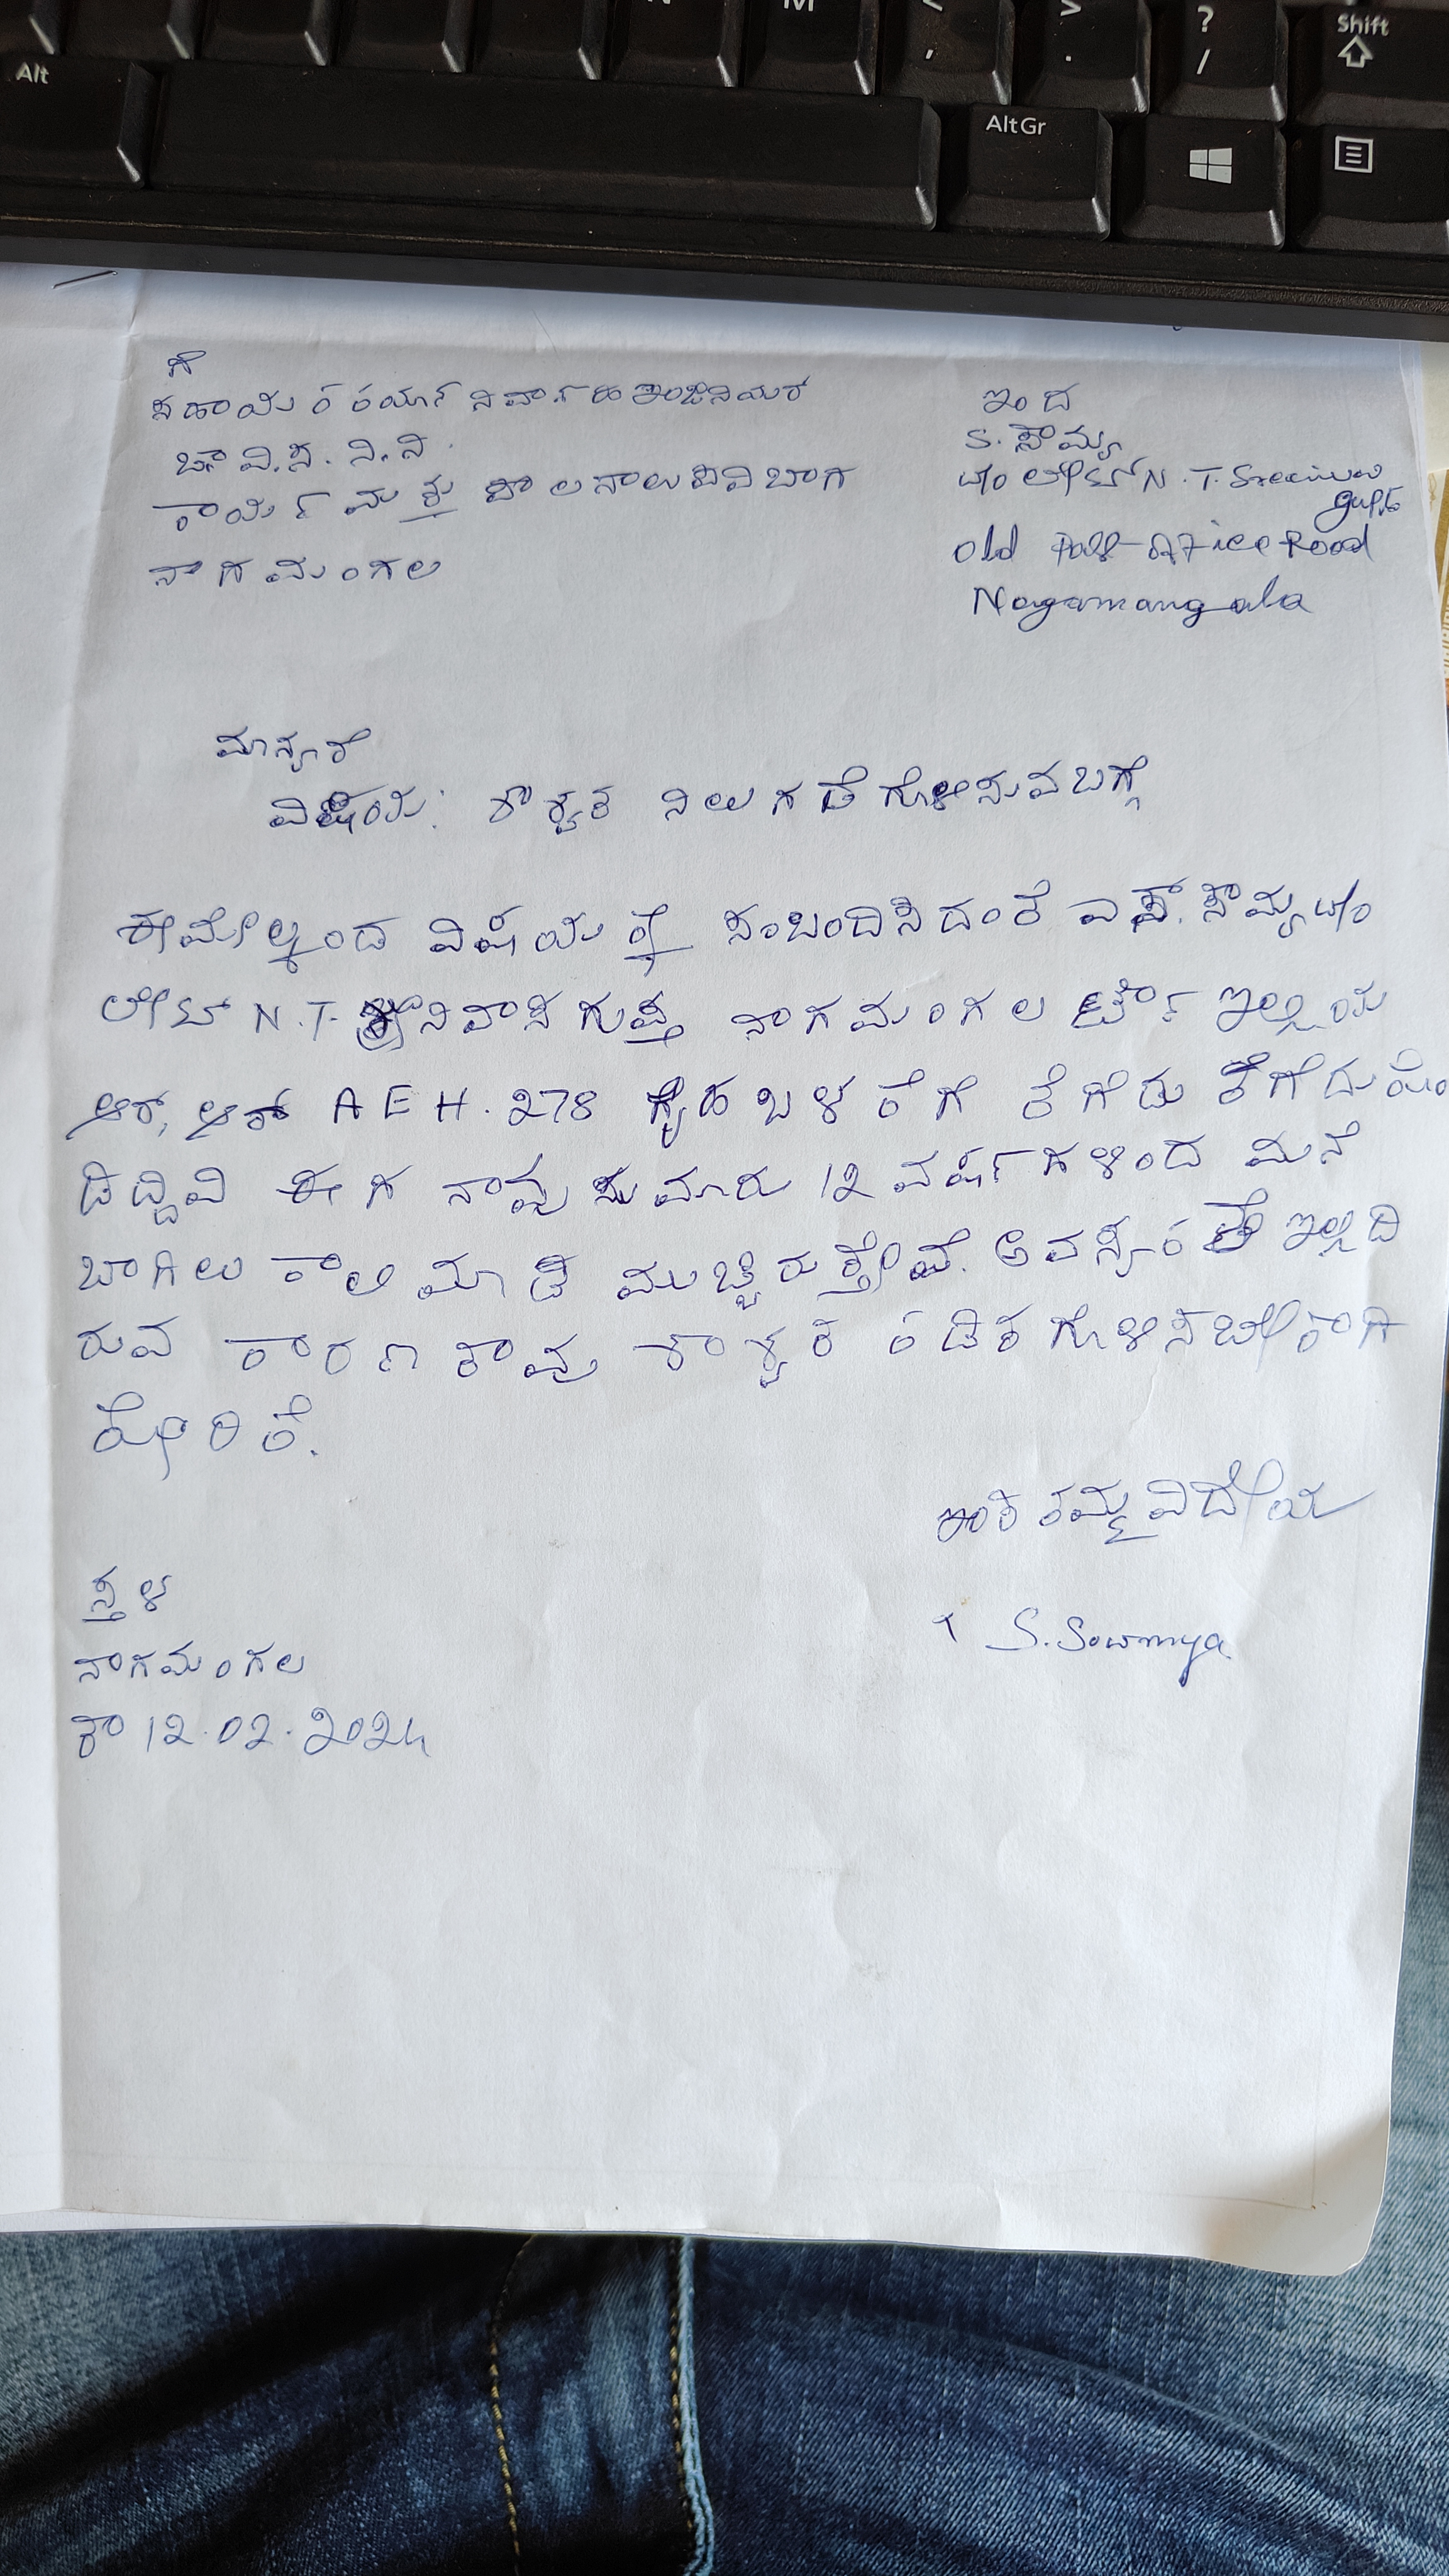 Alt
N
M
<
,
>
.
?
/
Shift
AltGr
ಗೆ
ಸಹಾಯಕ ಕಾರ್ಯನಿರ್ವಾಹಕ ಇಂಜಿನಿಯರ್
ಚಾ.ವಿ.ಸ.ನಿ.ನಿ.
ಕಾರ್ಯ ಮತ್ತು ಪಾಲನಾ ಉಪವಿಬಾಗ
ನಾಗಮಂಗಲ
ಇಂದ
S. ಸೌಮ್ಯ
w/o ಲೇಟ್ N.T. Sreeniva
gupta
Old Post Office Road
Nagamangala
ಮಾನ್ಯರೆ
ವಿಷಯ: ಶಾಶ್ವತ ನಿಲುಗಡೆಗೊಳಿಸುವ ಬಗ್ಗೆ
ಈ ಮೇಲ್ಕಂಡ ವಿಷಯಕ್ಕೆ ಸಂಬಂದಿಸಿದಂತೆ ಎಸ್. ಸೌಮ್ಯ w/o
ಲೇಟ್ N.T. ಶ್ರೀನಿವಾಸ ಗುಪ್ತ ನಾಗಮಂಗಲ ಟೌನ್ ಇಲ್ಲಿಯ
ಆರ್, ಆರ್ AEH.278 ಗೃಹ ಬಳಕೆಗೆ ತೆಗೆದು ತೆಗೆದುಕೊಂ
ಡಿದ್ದಿವಿ ಈಗ ನಾವು ಸುಮಾರು 12 ವರ್ಷಗಳಿಂದ ಮನೆ
ಬಾಗಿಲು ಕಾಲಿ ಮಾಡಿ ಮುಚ್ಚಿರುತ್ತೇವೆ. ಅವಸ್ಯಕತೆ ಇಲ್ಲದಿ
ರುವ ಕಾರಣ ತಾವು ಶಾಶ್ವತ ಕಡಿತಗೊಳಿಸಬೇಕಾಗಿ
ಕೋರಿಕೆ.
ಇಂತಿ ತಮ್ಮ ವಿದೇಯ
S. Sowmya
ಸ್ತಳ
ನಾಗಮಂಗಲ
ತಾ 12.02.2024